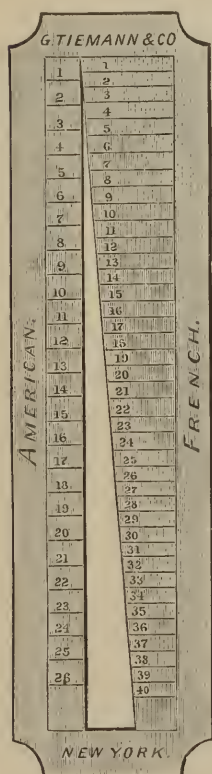 G. TIEMANN & CO
1
2
3
4
5
6
7
8
9
10
11
12
13
14
15
16
17
18
19
20
21
22
23
24
25
26
1
2
3
4
5
6
7
8
9
10
11
12
13
14
15
16
17
18
19
20
21
22
23
24
25
26
27
28
29
30
31
32
33
34
35
36
37
38
39
40
AMERICAN.
FRENCH.
NEW YORK.